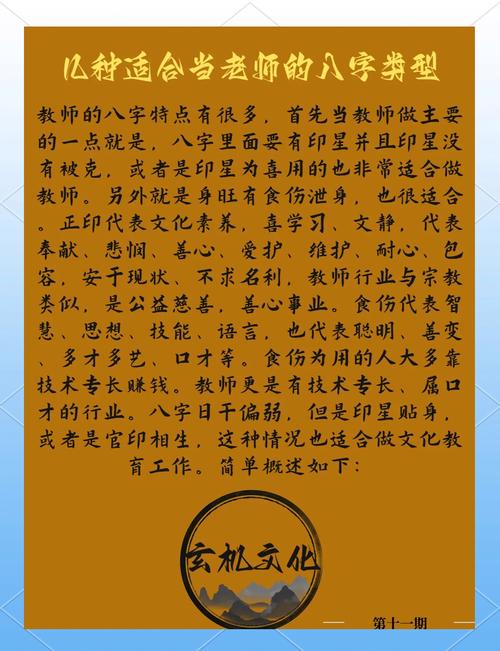 几种适合当老师的八字类型
教师的八字特点有很多，首先当教师做主要
的一点就是，八字里面要有印星并且印星没
有被克，或者是印星为喜用的也非常适合做
教师。另外就是身旺有食伤泄身，也很适合
。正印代表文化素养，喜学习、文静，代表
奉献、悲悯、善心、爱护、维护、耐心、包
容，安于现状、不求名利，教师行业与宗教
类似，是公益慈善，善心事业。食伤代表智
慧、思想、技能、语言，也代表聪明、善变
、多才多艺、口才等。食伤为用的人大多靠
技术专长赚钱。教师更是有技术专长、属口
才的行业。八字日干偏弱，但是印星贴身，
或者是官印相生，这种情况也适合做文化教
育工作。简单概述如下：
玄机文化
第十一期